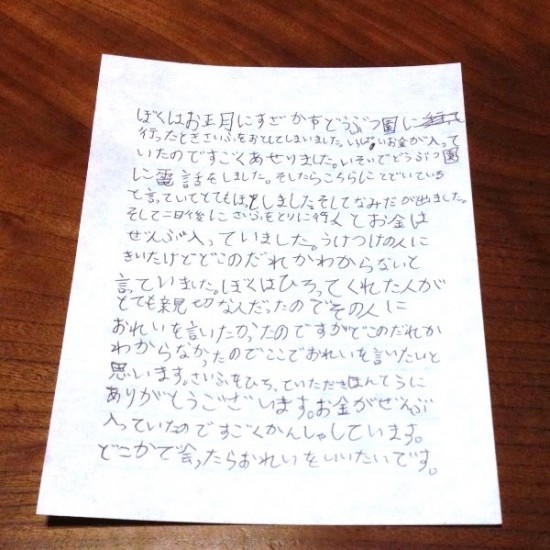 ぼくはお正月にすざか市どうぶつ園に
行ったときさいふをおとしてしまいました。いっぱいお金が入って
いたのですごくあせりました。いそいでどうぶつ園
に電話をしました。そしたらこちらにとどいている
と言っていてとてもほっとしました。そしてなみだが出ました。
そして二日後にさいふをとりに行くとお金は
ぜんぶ入っていました。うけつけの人に
きいたけどどこのだれかわからないと
言っていました。ぼくはひろってくれた人が
とても親切な人だったのでその人に
おれいを言いたかったのですがどこのだれか
わからなかったのでここでおれいを言いたいと
思います。さいふをひろっていただきほんとうに
ありがとうございます。お金がぜんぶ
入っていたのですごくかんしゃしています。
どこかで会ったらおれいをいいたいです。